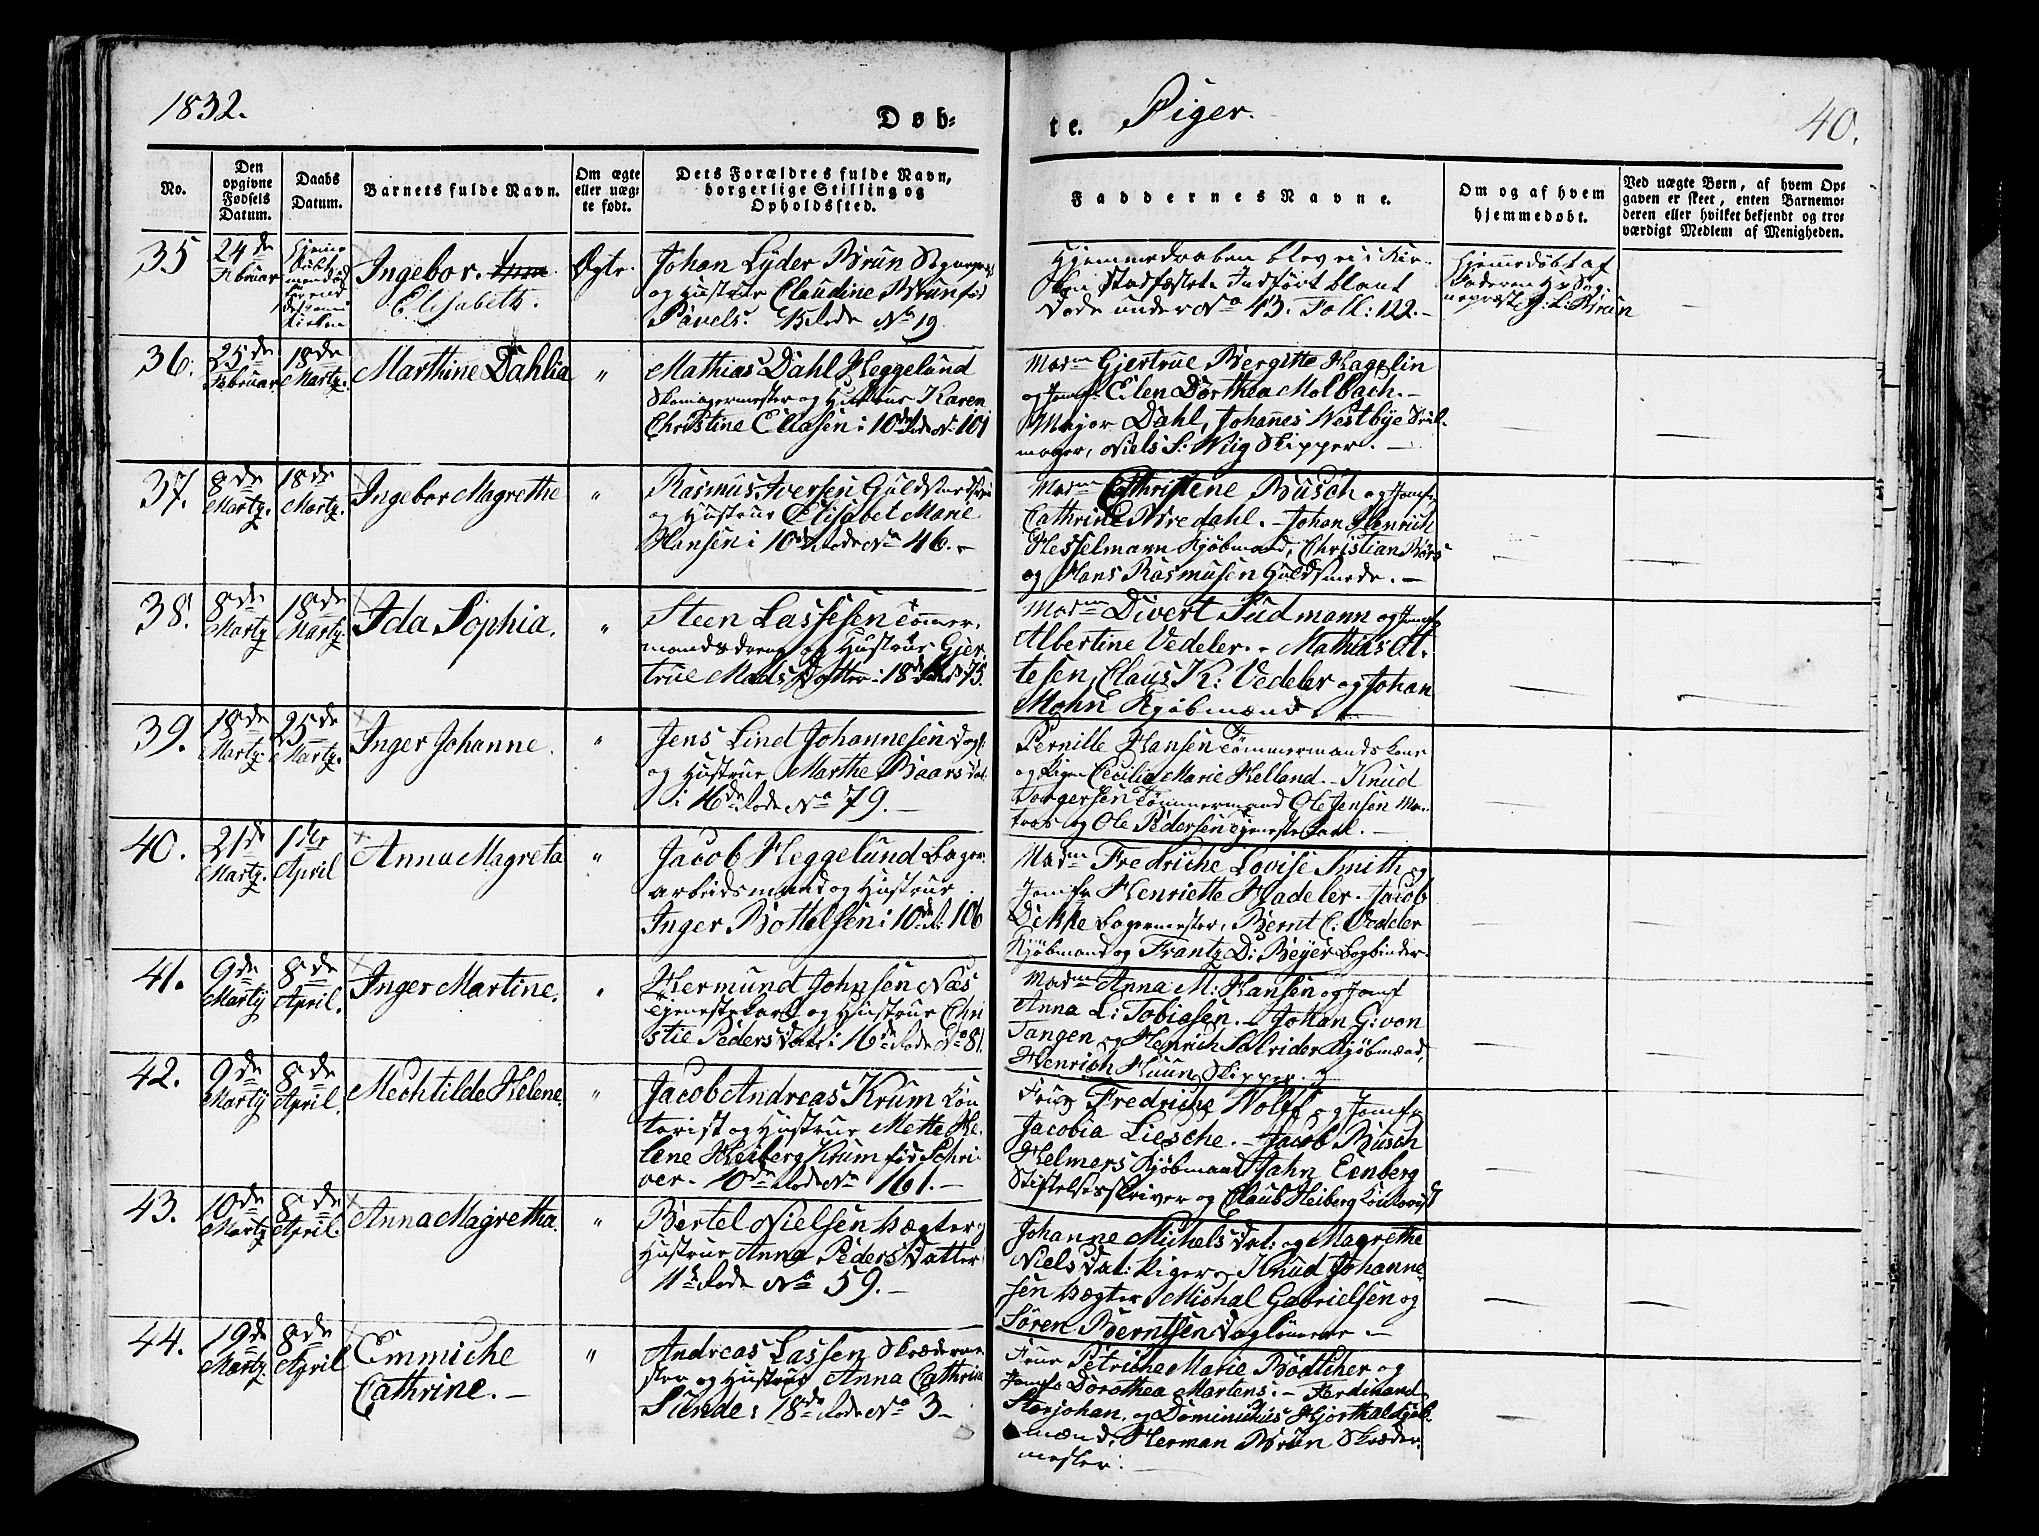 1832.
Døb-
te. Piger.
40.
No.
Den opgivne Fødsels Datum.
Daabs Datum.
Barnets fulde Navn.
Om ægte eller uæg- te født.
Dets Forældres fulde Navn, borgerlige Stilling og Opholdssted.
Faddernes Navne.
Om og af hvem hjemmedøbt.
Ved uægte Børn, af hvem Op- gaven er skeet, enten Barnemo- deren eller hvilket bekjendt og tro- værdigt Medlem af Menigheden.
35
24de Februar
Ingebor.
Elisabeth.
Ægte.
Johan Lyder Brun Sognepræst
og Hustrue Claudine Brun fød
Pavels. Rode No 19
Hjemmedaaben blev ei i Kir-
ken Stadfæstet. Indført blant
Døde under No 43. Foll: 122.
Hjemmedøbt af
Faderen Hr Sog-
nepræst J: L: Brun
36.
25de Februar
18de Martz.
Marthine Dahlia
"
Mathias Dahl Heggelund
Skomagermester og Hustrue Karen
Christine Eliasen i 10de Rode No 101
Madm Gjertrue Bergitte Hagelin
og Jomf: Elen Dorthea Molbach. -
Major Dahl, Johannes Westbye Seil-
mager, Niels S: Wiig Skipper. -
37.
8de Martz.
18de Martz.
Ingebor Magrethe
"
Rasmus Iversen Guldsmed
og Hustrue Elisabet Marie
Hansen i 10de Rode No 46. -
Madm Cathrine Busch og Jomfr
Cathrine Bredahl. - Johan Henrich
Hesselmann Kjøbmand, Christian Børs
og Hans Rasmusen Guldsmede. -
38.
8de Martz
18de Martz
Ida Sophia.
"
Steen Lassesen Tømmer-
mandsdreng og Hustrue Gjer-
true Mads Datter i 18de Rode 75.
Madm Divert Sudmann og Jomfr
Albertine Vedeler. - Mathias Ot-
tesen, Claus K: Vedeler og Johan
Mohn Kjøbmænd. -
39.
18de Martz.
25de Martz.
Inger Johanne.
"
Jens Lind Johannesen Dagl:
og Hustrue Marthe Baars Dat.
i 16de Rode No 79. -
Pernille Hansen Tømmermandskone
og Pigen Cecilia Marie Helland. - Knud
Torgersen Tømmermand Ole Jensen Ma-
tros og Ole Pedersen Tjenestekarl. -
40.
21de Martz.
1ste April
Anna Magreta
"
Jacob Heggelund Bager
arbeidsmand og Hustrue
Inger Bottelsen i 10de R: 106
Madm Fredriche Lovise Smith og
Jomfr Henriette Hadeler. Jacob
Dekke Bagermester, Bernt C: Vedeler
Kjøbmand og Frantz D: Beyer Bogbinder.
41.
9de Martz
8de April.
Inger Martine.
"
Hermund Johnsen Næs
Tjenestekarl og Hustrue Chri
stie Peders Datr i 16de Rode No 81.
Madm Anna M: Hansen og Jomf
Anna L: Tobiasen. - Johan G: von
Tangen og Henrich Kjøbmænd,
Henrich Huun Skipper.
42.
9de Martz
8de April.
Mechtilde Helene.
"
Jacob Andreas Krum Con-
torist og Hustrue Mette He-
lene Heiberg Krum fød Schri-
ver. 10de Rode No 161. -
Frue Fredriche Wolff og Jomfr
Jacobia Liesche. - Jacob Busch
Helmers Kjøbmand, Jahn Eenberg
Stiftelsesskriver og Claus Heiberg Contorist
43.
10de Martz
8de April.
Anna Magretha.
"
Bertel Nielsen Vægter og
Hustrue Anna Peders Datter
11te Rode No 59. -
Johanne Michels Dat: og Magrethe
Niels Dat: Piger og Knud Johanne-
sen Vægter, Michal Gabrielsen og
Søren Berntsen Daglønnere. -
44.
19de Martz.
8de April
Emmiche
Cathrine. -
"
Andreas Lassen Skræderme-
ster og Hustrue Anna Cathrine
Sunde i 18de Rode No 3 -
Frue Petriche Marie Bødtcher og
Jomfr Dorothea Martens. - Ferdinand
Storjohan, og Dominikus Hjorthal Kjøb-
mænd, Herman Brun Skræder-
mester.